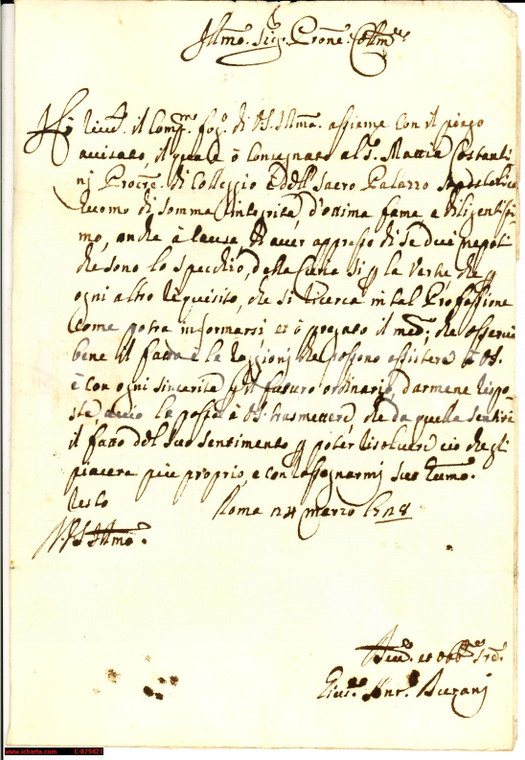 Illmo. Sig. Prone. Collmo.
Hò ricev. il Comp. fog. di VS. Illma. assieme con il piego
avvisato, il quale ò consegnato al S. Mattia Costanti
nj Procre. di Colleggio e dell Sacro Palazzo Apostolico
huomo di somma integrità, d'ottima fama e diligentissi
mo, anche à causa di aver appresso di se due nepoti
che sono lo specchio della Curia si p la Verità, che p
ogni altro requisito, che si ricerca in tal Professione
come potrà informarsi, et ò pregato il med; che osservi
bene il fatto e le raggioni che possono assistere à VS.
e con ogni sincerità p il futuro ordinario, darmene rispo-
sta, acciò la possa à VS. trasmettere, che da quella sentirà
il fatto del suo sentimento p poter risolvere ciò che gli
piacerà più proprio, e con rassegnarmi suo
resto
Roma 24 Marzo 1728
VS. Illmo.
et obb. Srd.
Gius. Ant.
www.icharta.com C-079421